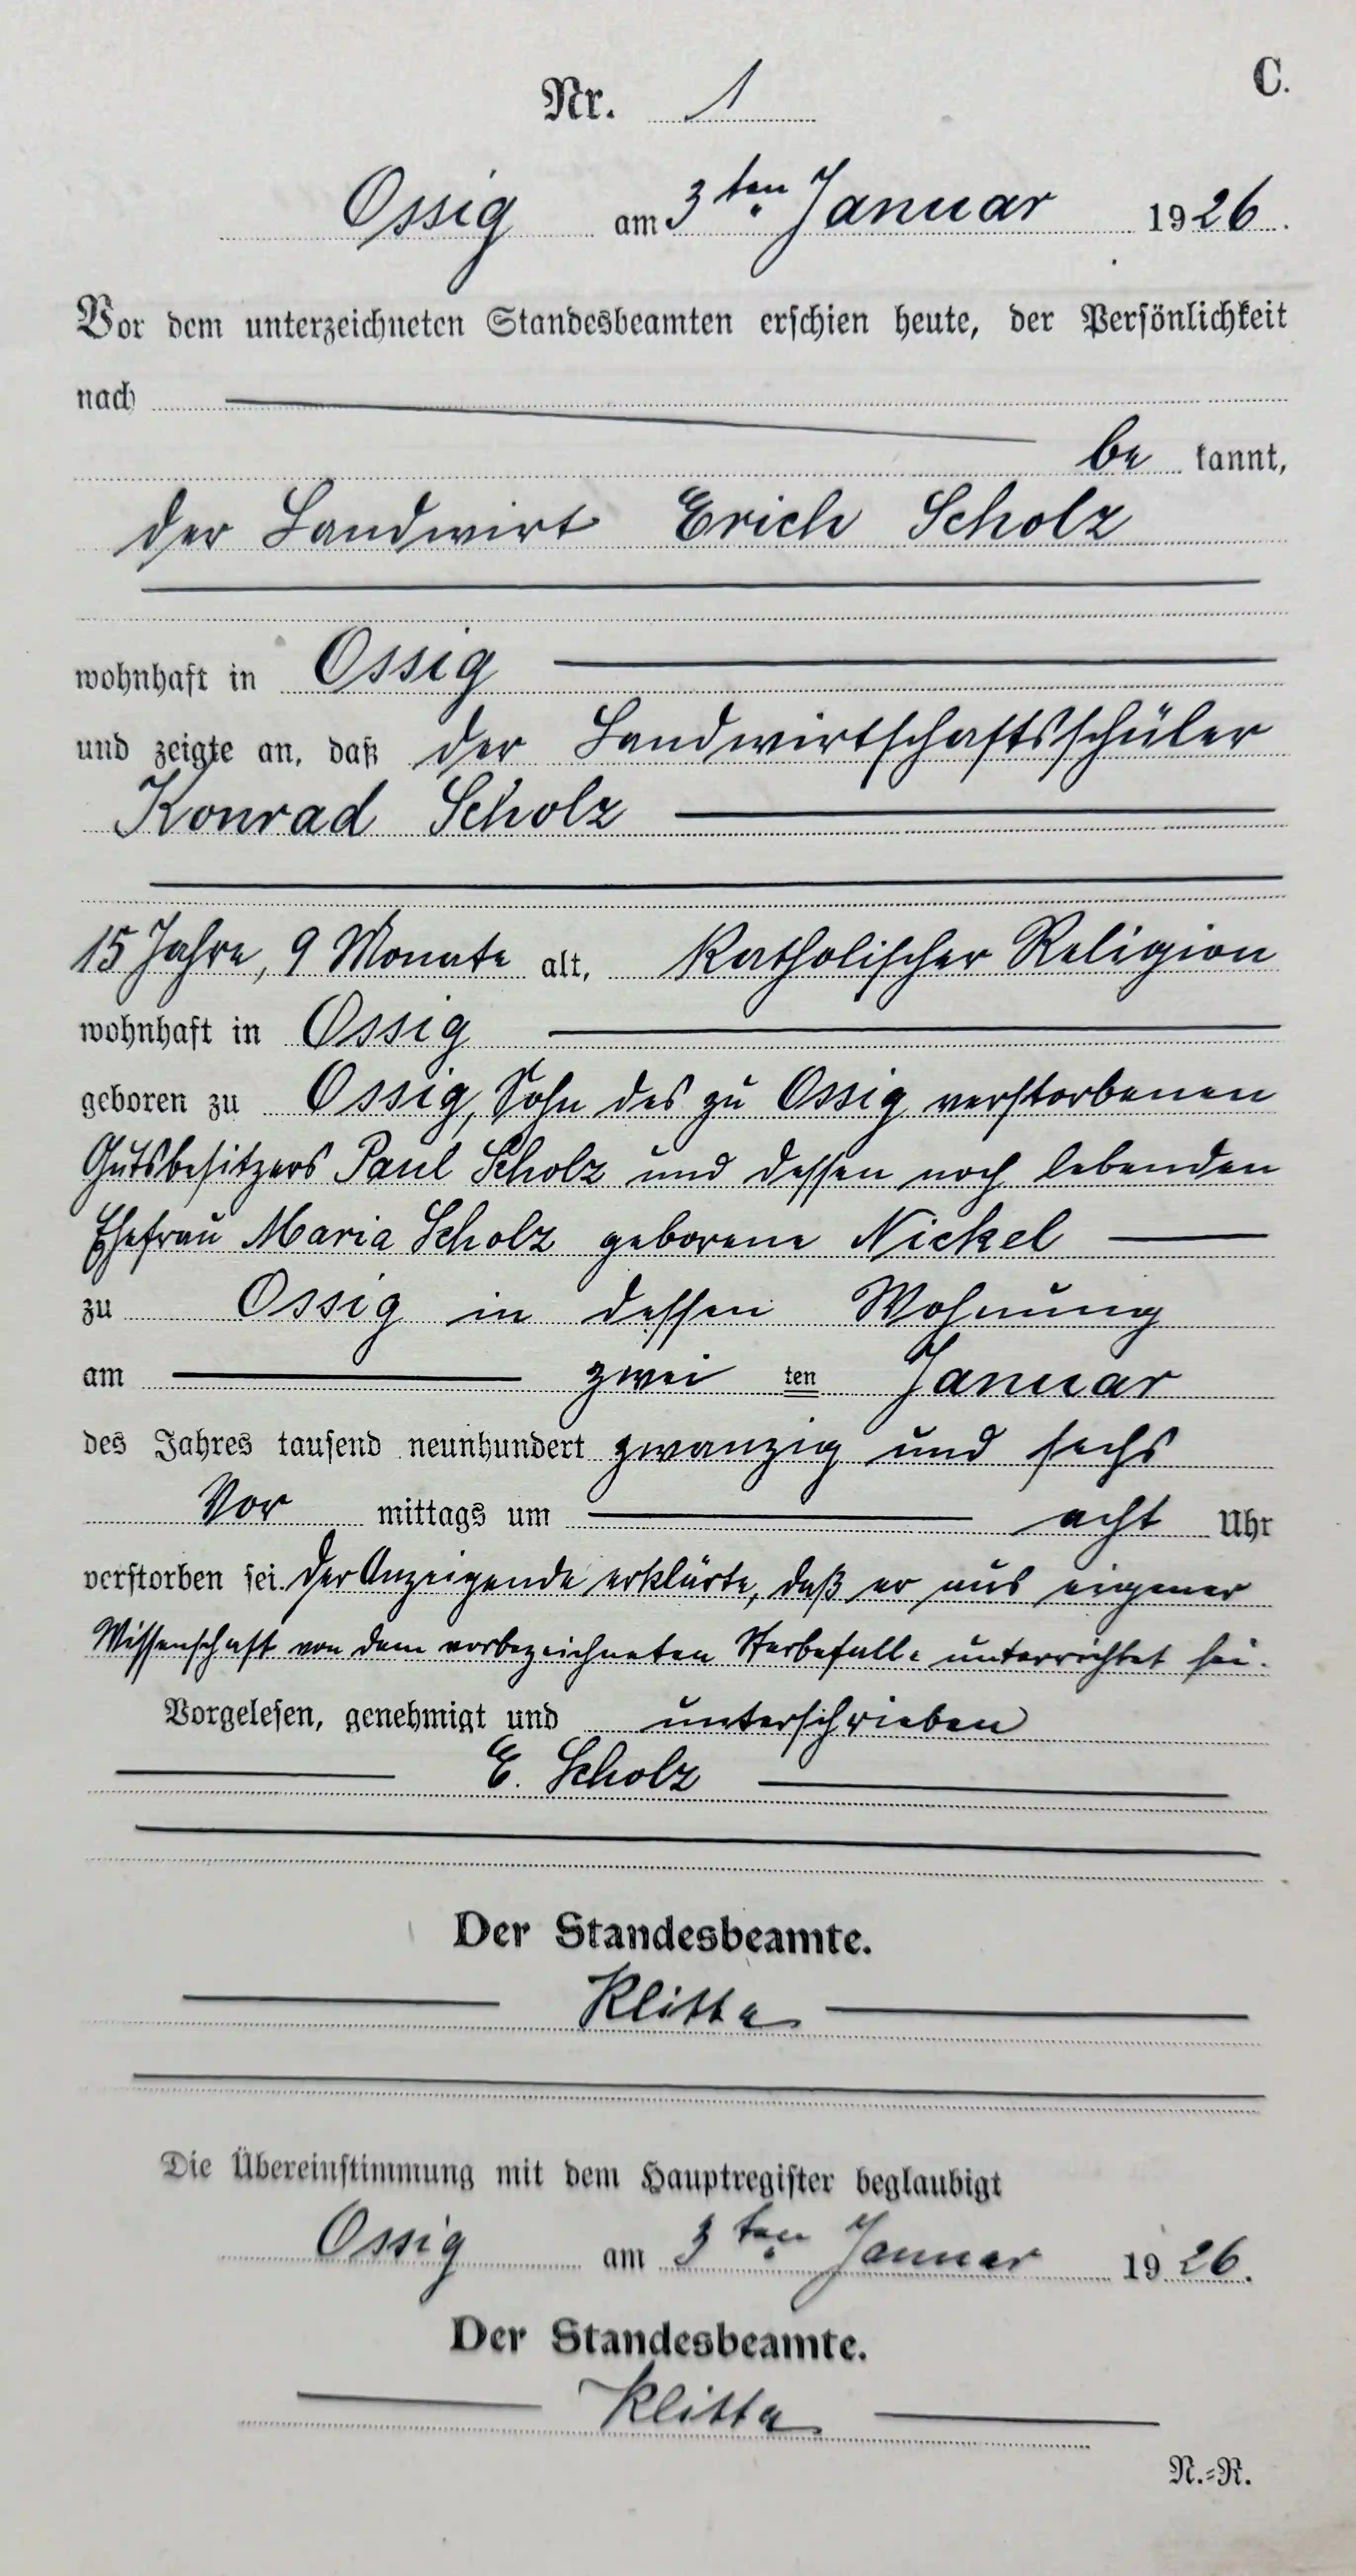 C.
Nr. 1
Ossig am 3ten Januar 1926.
Vor dem unterzeichneten Standesbeamten erschien heute, der Persönlichkeit
nach
be kannt,
der Landwirt Erich Scholz
wohnhaft in Ossig
und zeigte an, daß der Landwirtschaftsschüler
Konrad Scholz
15 Jahre, 9 Monate alt, Katholischer Religion
wohnhaft in Ossig
geboren zu Ossig, Sohn des zu Ossig verstorbenen
Gutsbesitzers Paul Scholz und dessen noch lebenden
Ehefrau Maria Scholz geborene Nickel
zu Ossig in dessen Wohnung
am zwei ten Januar
des Jahres tausend neunhundert zwanzig und sechs
Vor mittags um acht Uhr
verstorben sei. Der Anzeigende erklärte, daß er aus eigener
Wissenschaft von dem vorbezeichneten Sterbefalle unterrichtet sei.
Vorgelesen, genehmigt und unterschrieben
E. Scholz
Der Standesbeamte.
Klitta
Die Übereinstimmung mit dem Hauptregister beglaubigt
Ossig am 3ten Januar 1926.
Der Standesbeamte.
Klitta
N.=R.